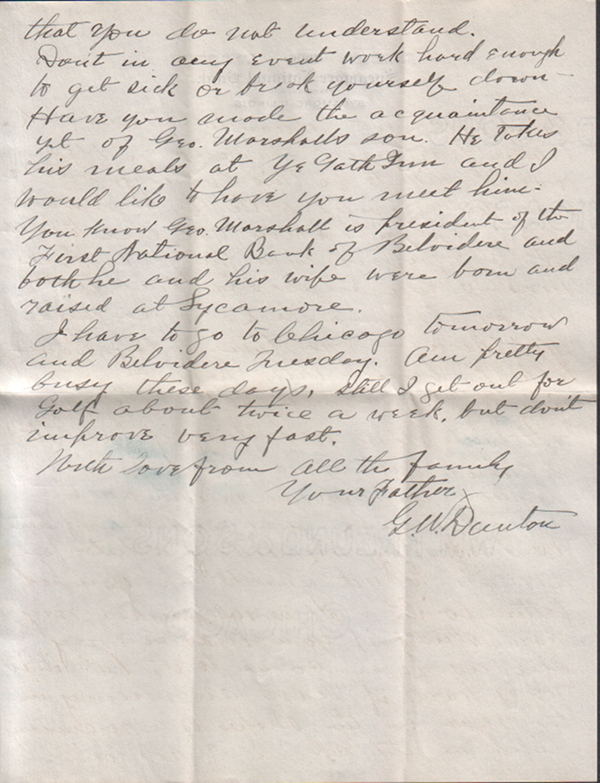 that you do not understand.
Don't in any event work hard enough
to get sick or break yourself down -
Have you made the acquaintance
yet of Geo. Marshalls son. He takes
his meals at Ye Gath Inn and I
would like to have you meet him -
You know Geo. Marshall is president of the
First National Bank of Belvidere and
both he and his wife were born and
raised at Sycamore.
I have to go to Chicago tomorrow
and Belvidere Tuesday. Am pretty
busy these days, still I get out for
Golf about twice a week, but don't
improve very fast.
With Love from all the family
Your Father
G.W. Dunton